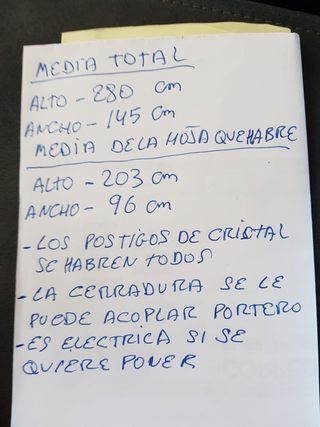 MEDIA TOTAL
ALTO - 280 cm
ANCHO - 145 cm
MEDIA DE LA HOJA QUE HABRE
ALTO - 203 cm
ANCHO - 96 cm
- LOS POSTIGOS DE CRISTAL
SE HABREN TODOS
- LA CERRADURA SE LE
PUEDE ACOPLAR PORTERO
- ES ELECTRICA SI SE
QUIERE PONER